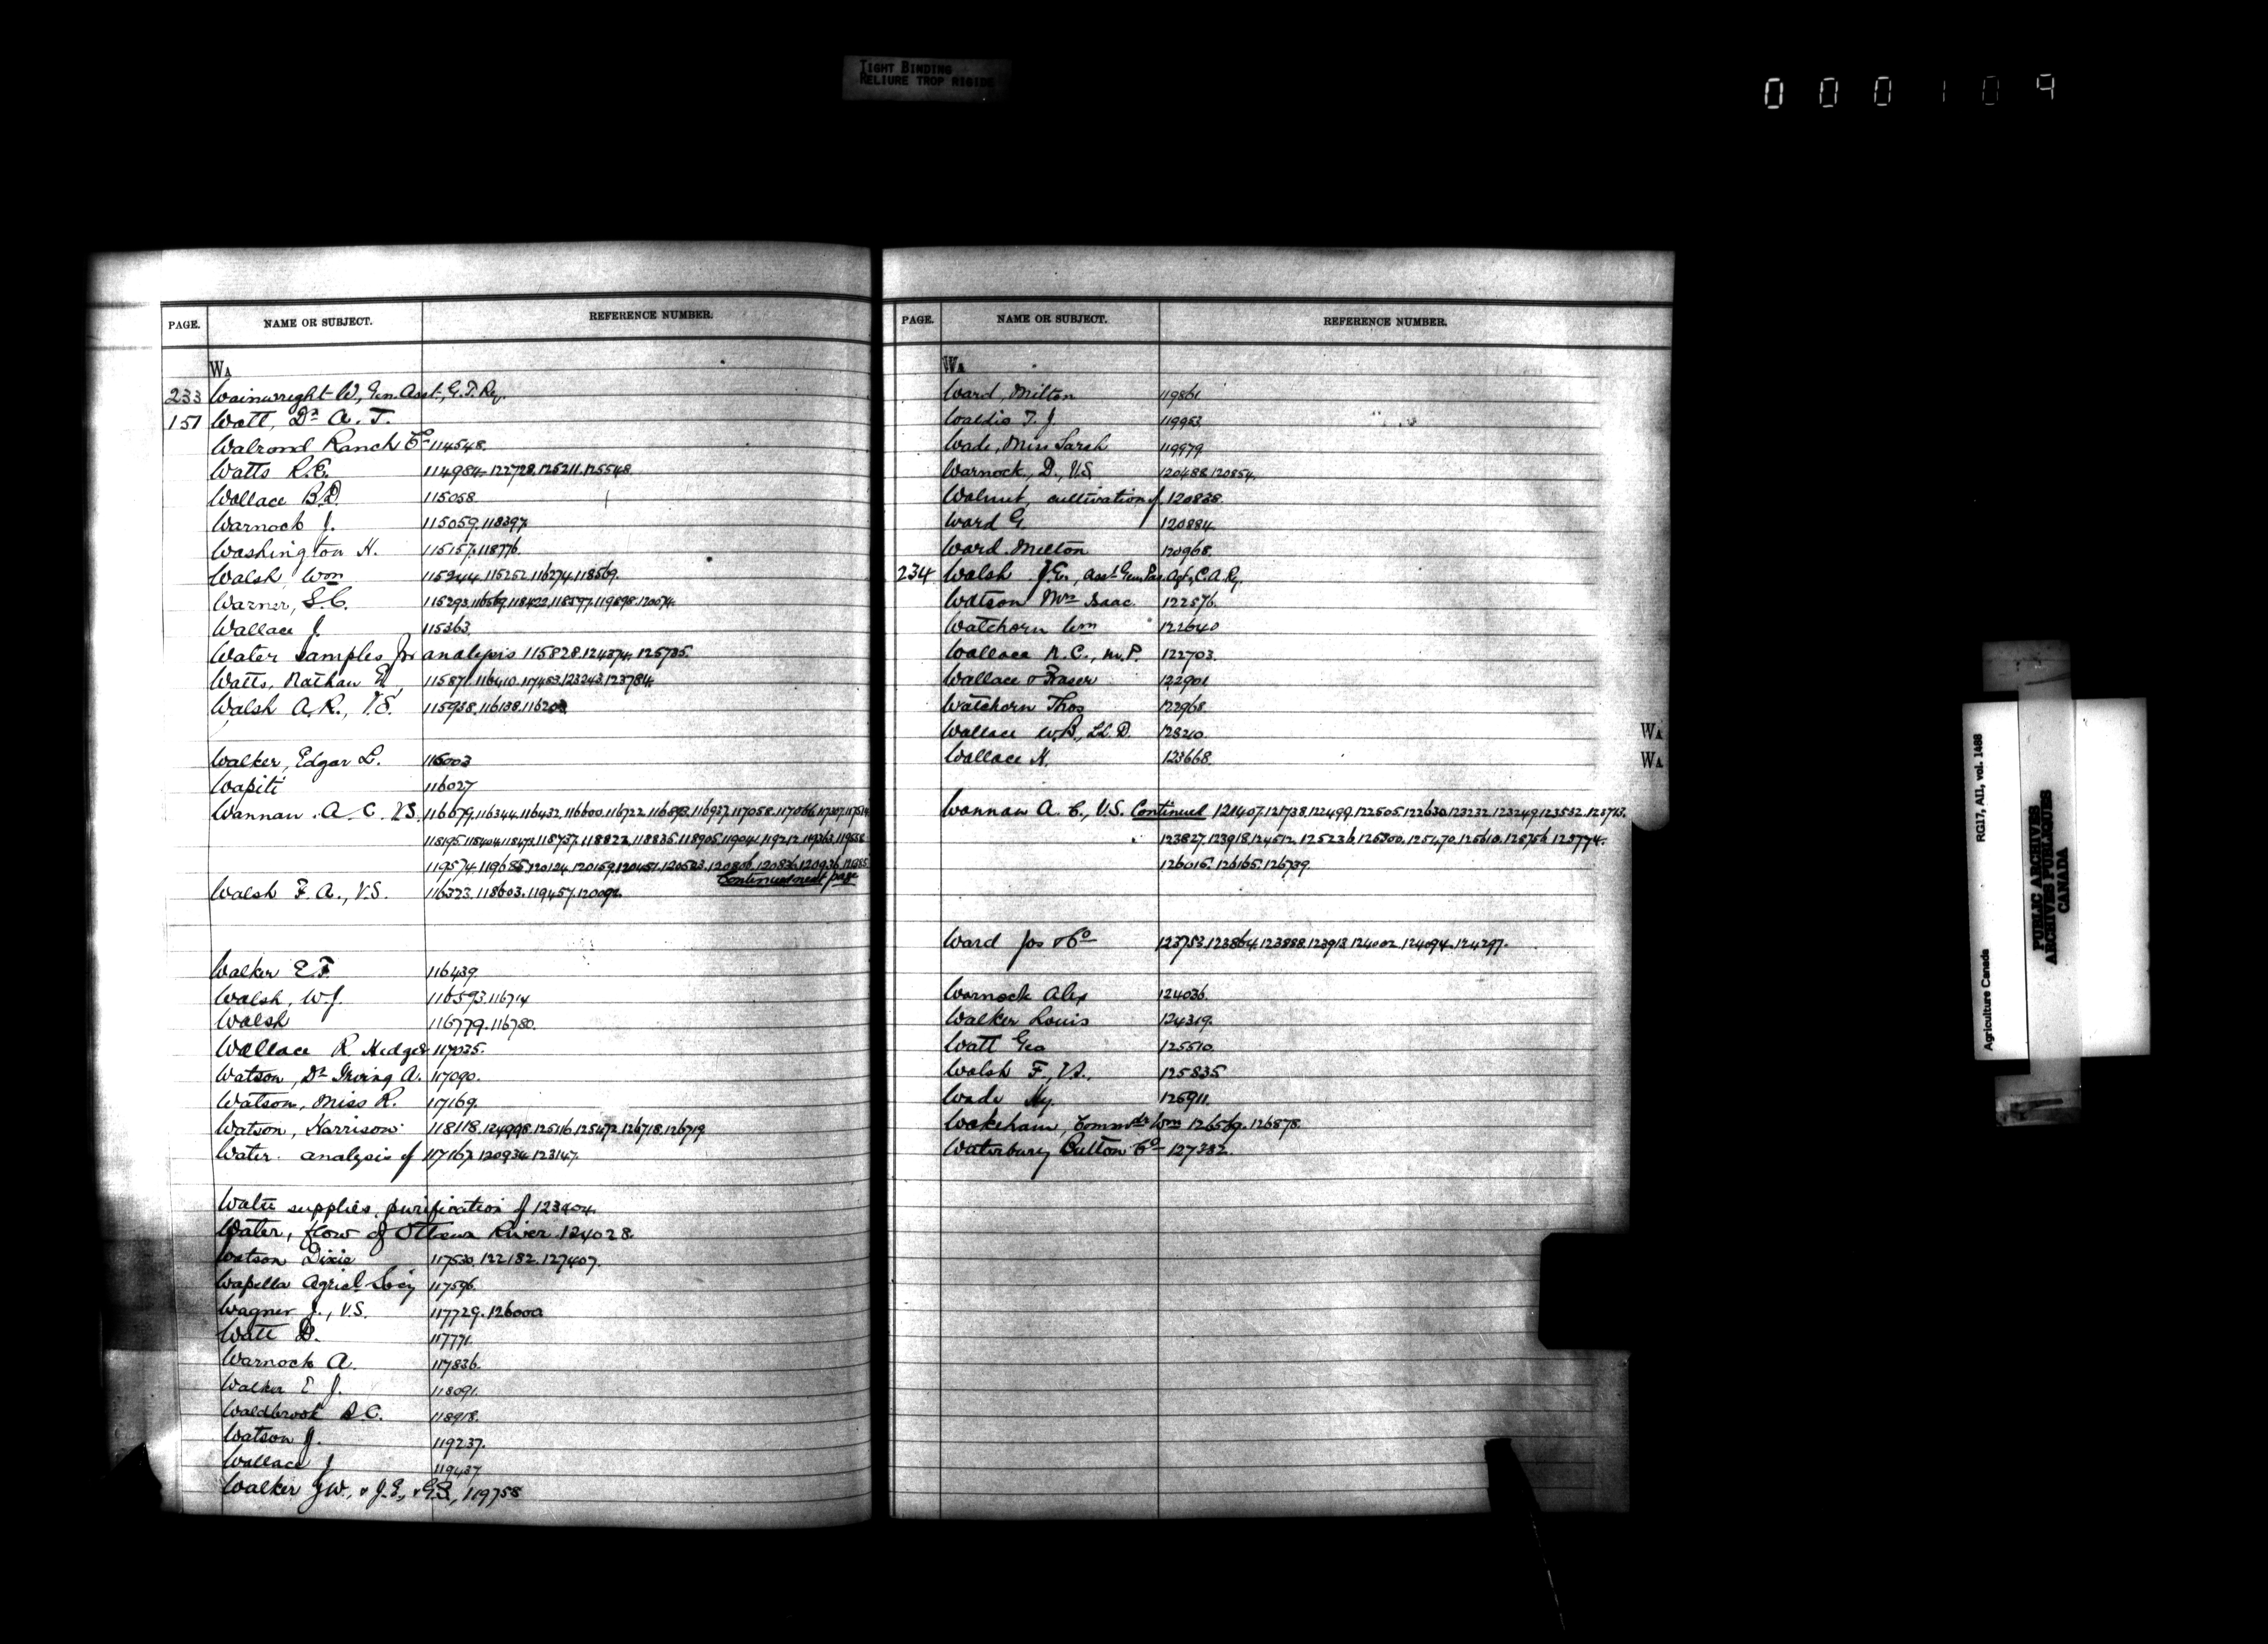 TIGHT BINDING
RELIURE TROP RIGIDE
000109
PAGE. NAME OR SUBJECT. REFERENCE NUMBER.
WA
233 Wainwright W, Gen. Asst, G.T. Ry.
151 Watt, Dr A. T.
Walrond Ranch Co 114548.
Watts R.E. 114984. 122728. 125211. 125548
Wallace B.D. 115058
Warnock J. 115059. 118397.
Washington H. 115157. 118776.
Walsh Wm 115244. 115252. 116274. 118569.
Warner, S.C. 115293. 116569. 118422. 118597. 119898. 120074.
Wallace J. 115363.
Water samples for analysis 115828. 124374. 125735.
Watts, Nathan E. 115871. 116410. 117453. 123243. 123784.
Walsh A.R., V.S. 115938. 116138. 116203
Walker, Edgar L. 116003
Wapiti 116027
Wannan A. C. V.S. 116079. 116344. 116432. 116600. 116722. 116893. 116927. 117058. 117066. 117307.
118195. 118404. 118473. 118737. 118822. 118835. 118905. 119041. 119212. 119363.
119574. 119685. 120124. 120159. 120451. 120523. 120806. 120836. 120936.
Continued next page
Walsh F. A., V.S. 116323. 118603. 119457. 120092.
Walker E F. 116439
Walsh, W.J. 116593. 116714
Walsh 116779. 116780.
Wallace R Hedger 117035.
Watson, Dr Irving A. 117090.
Watson, Miss R. 117169.
Watson, Harrison 118118. 124998. 125116. 125472. 126718. 126719
Water analysis of 117167. 120934. 123147.
Water supplies, purification of 123404.
Water, flow of Ottawa River 124028.
Watson Dixie 117530. 122182. 127407.
Wapella Agricl Socy 117596.
Wagner J., V.S. 117729. 126000
Watt D. 117771.
Warnock A. 117836.
Walker E J. 118091.
Waldbrook S C. 118918.
Watson J. 119237.
Wallace J 119437
Walker J.W., & J.E., & G.B., 119758
PAGE. NAME OR SUBJECT. REFERENCE NUMBER.
WA
Ward, Milton 119861
Waldio T. J. 119953
Wade, Miss Sarah 119979
Warnock, D., V.S. 120488. 120854.
Walnut, cultivation of 120838.
Ward G. 120884.
Ward Milton 120968.
234 Walsh J.E., Asst Gen. Pas. Agt, C.A. Ry.
Watson Mrs Isaac 122576.
Watchorn Wm 122640
Wallace N. C., M.P. 122703.
Wallace & Fraser 122901
Watchorn Thos 122968.
Wallace W.B., LL.D. 123210.
Wallace H. 123668.
WA
WA
Wannan A. C., V.S. Continued 121407. 121738. 122499. 122505. 122630. 123232. 123249. 123532. 123713.
123827. 123918. 124512. 125236. 125300. 125470. 125610. 125756. 125774.
126015. 126165. 126739.
Ward Jos & Co 123753. 123864. 123888. 123913. 124002. 124094. 124297.
Warnock Alex 124036.
Walker Louis 124319.
Watt Geo 125510.
Walsh F., V.S., 125835
Wade Hy. 125911.
Wakeham, Commdr Wm 126569. 126878.
Waterbury Button Co 127382.
RG17, AII, vol. 1488
Agriculture Canada
PUBLIC ARCHIVES
ARCHIVES PUBLIQUES
CANADA